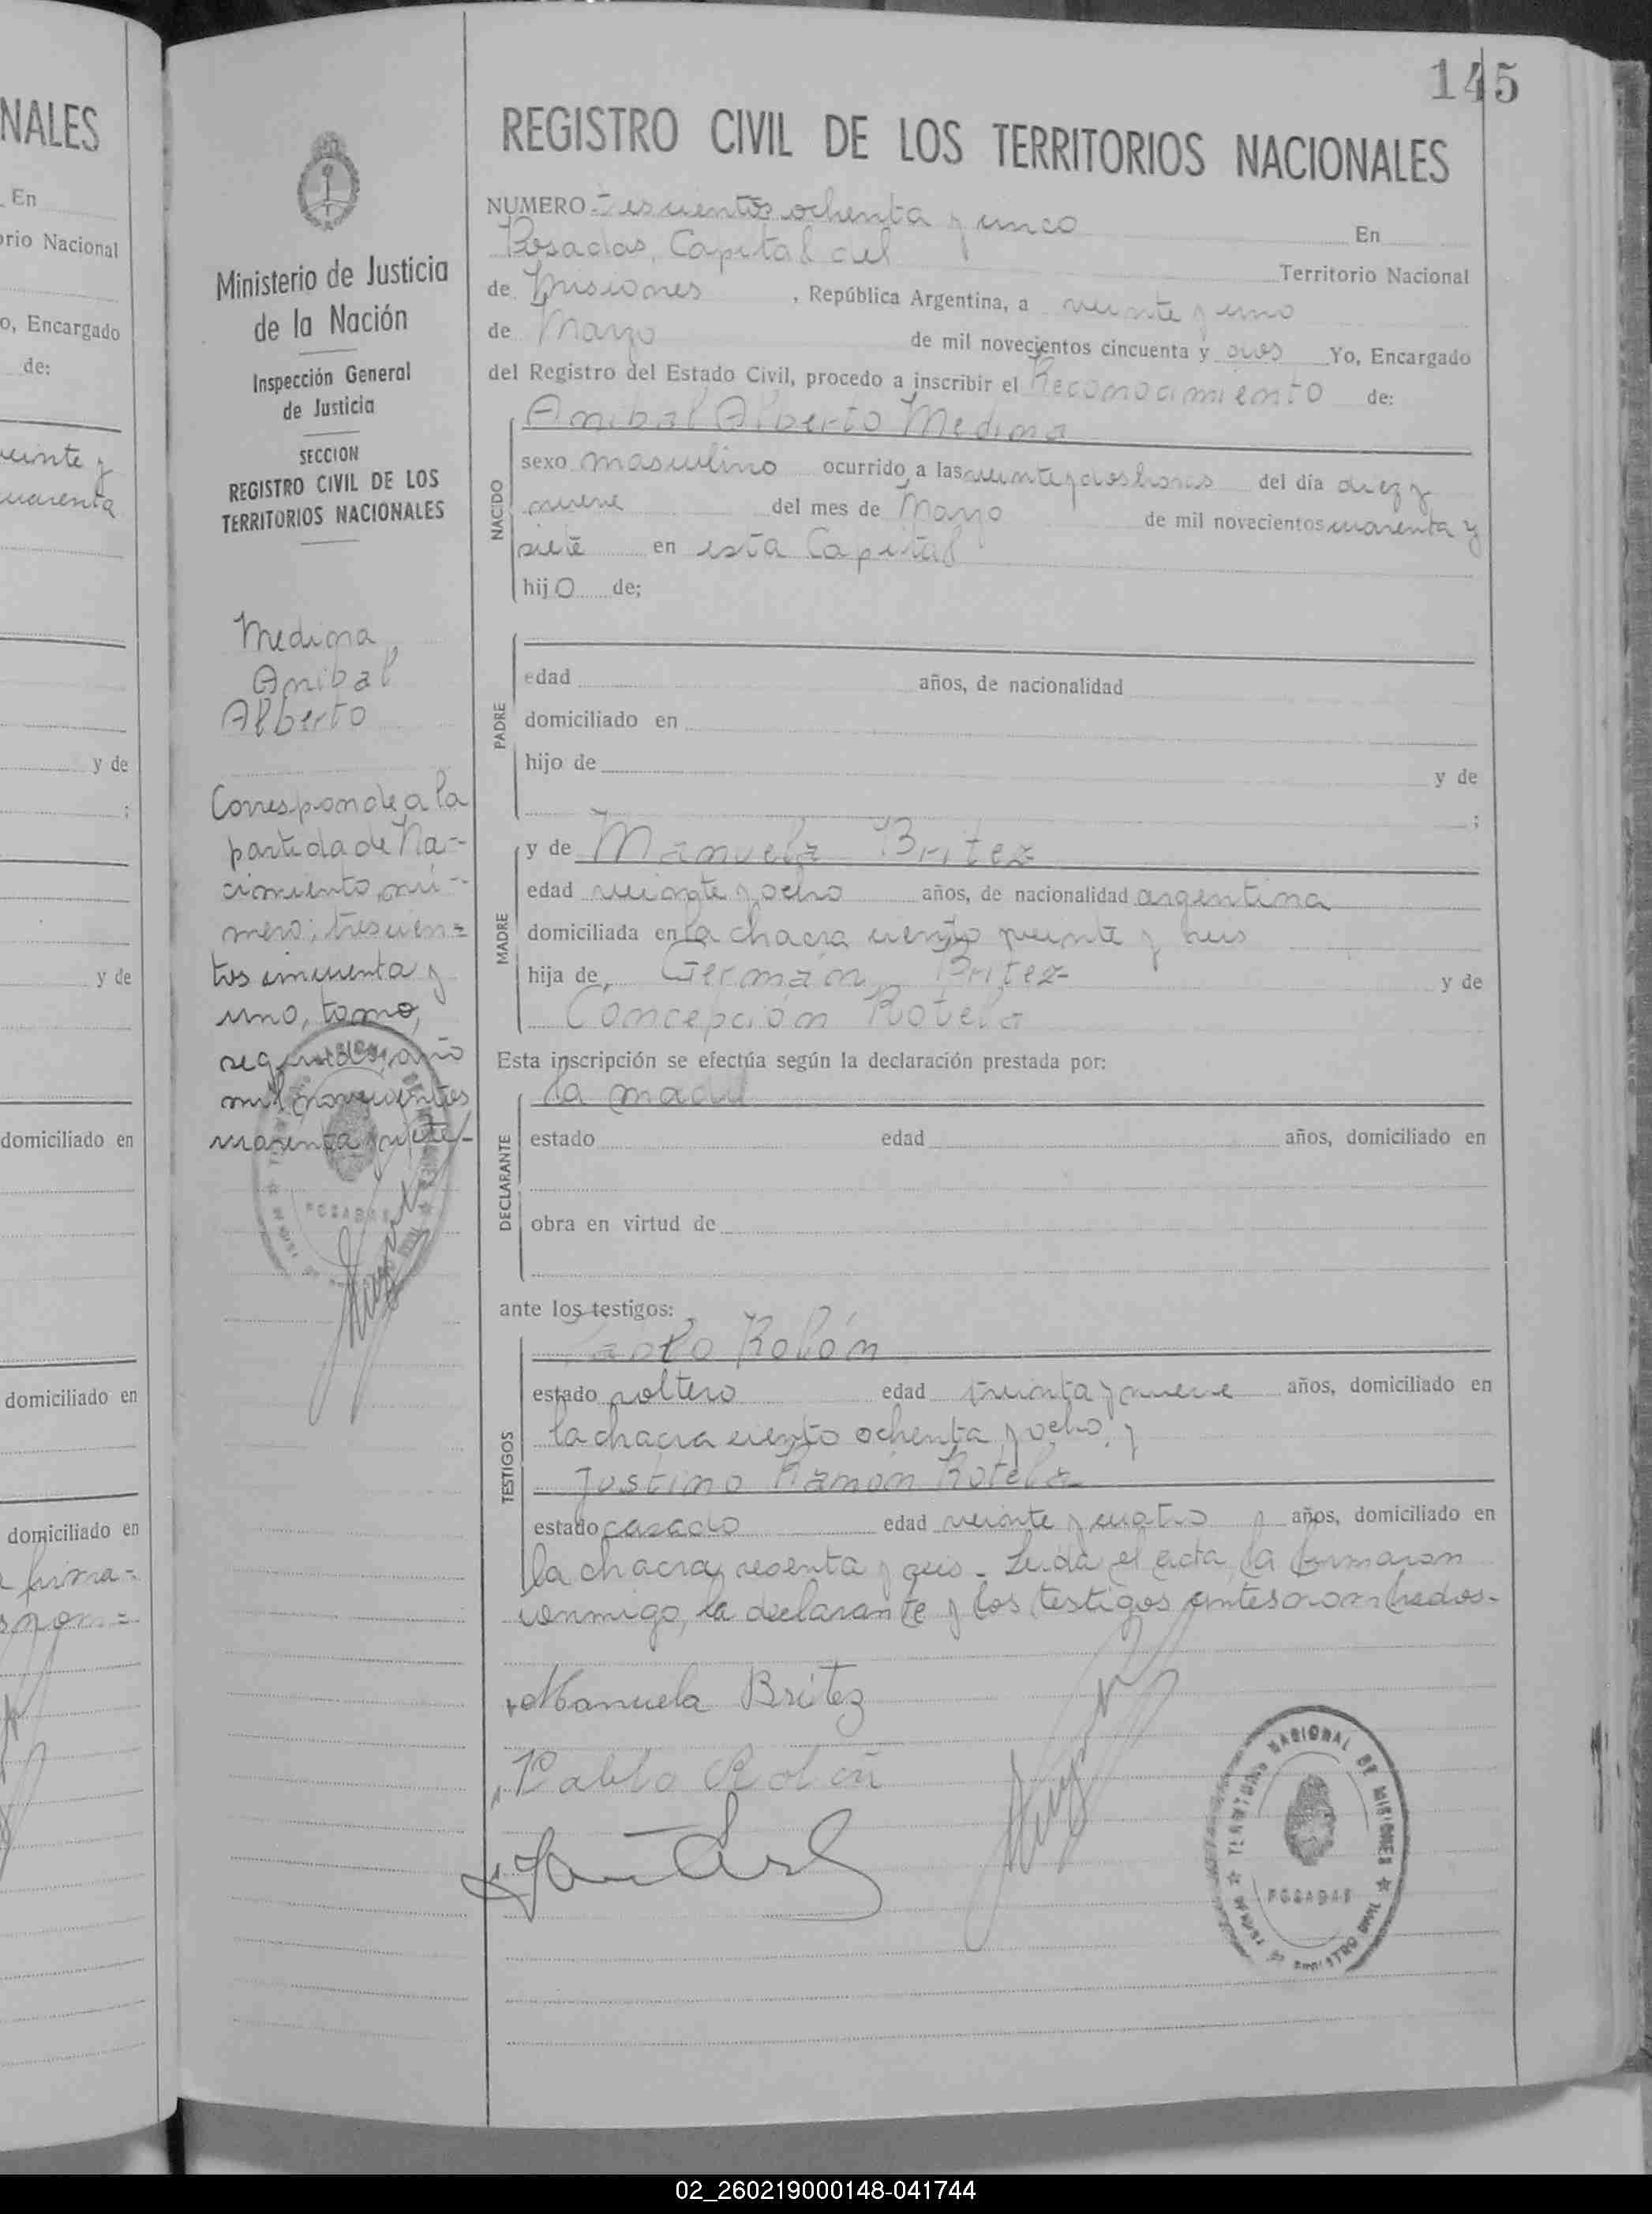 145
NALES
En
orio Nacional
o, Encargado
de:
veinte y
cuarenta
y de
;
y de
domiciliado en
domiciliado en
domiciliado en
firma=
nom=
Ministerio de Justicia
de la Nación
Inspección General
de Justicia
SECCION
REGISTRO CIVIL DE LOS
TERRITORIOS NACIONALES
Medina,
Anibal
Alberto
Corresponde a la
partida de Na-
cimiento, nú-
mero; trescien=
tos cincuenta y
uno, tomo,
segundo, año
mil novecientos
cuarenta y siete/-
POSADAS
REGISTRO CIVIL DE LOS TERRITORIOS NACIONALES
NUMERO Trescientos ochenta y cinco En
Posadas, Capital del Territorio Nacional
de Misiones, República Argentina, a veinte y uno
de Mayo de mil novecientos cincuenta y dos Yo, Encargado
del Registro del Estado Civil, procedo a inscribir el Reconocimiento de:
NACIDO
Anibal Alberto Medina
sexo masculino ocurrido a las veinte y dos horas del día diez y
nueve del mes de Mayo de mil novecientos cuarenta y
siete en esta Capital
hijo de;
PADRE
edad años, de nacionalidad
domiciliado en
hijo de y de
;
MADRE
y de Manuela Britez
edad veinte y ocho años, de nacionalidad argentina
domiciliada en la chacra ciento veinte y seis
hija de, Germán Britez y de
Concepción Rotela
Esta inscripción se efectúa según la declaración prestada por:
DECLARANTE
la madre
estado edad años, domiciliado en
obra en virtud de
ante los testigos:
TESTIGOS
Pablo Rolón
estado soltero edad treinta y nueve años, domiciliado en
la chacra ciento ochenta y ocho, y
Justino Ramón Rotela
estado casado edad veinte y cuatro años, domiciliado en
la chacra sesenta y seis. Leída el acta, la firmaron
conmigo, la declarante y los testigos antes nombrados-
Manuela Britez
Pablo Rolón
TERRITORIO NACIONAL DE MISIONES
POSADAS
02_260219000148-041744